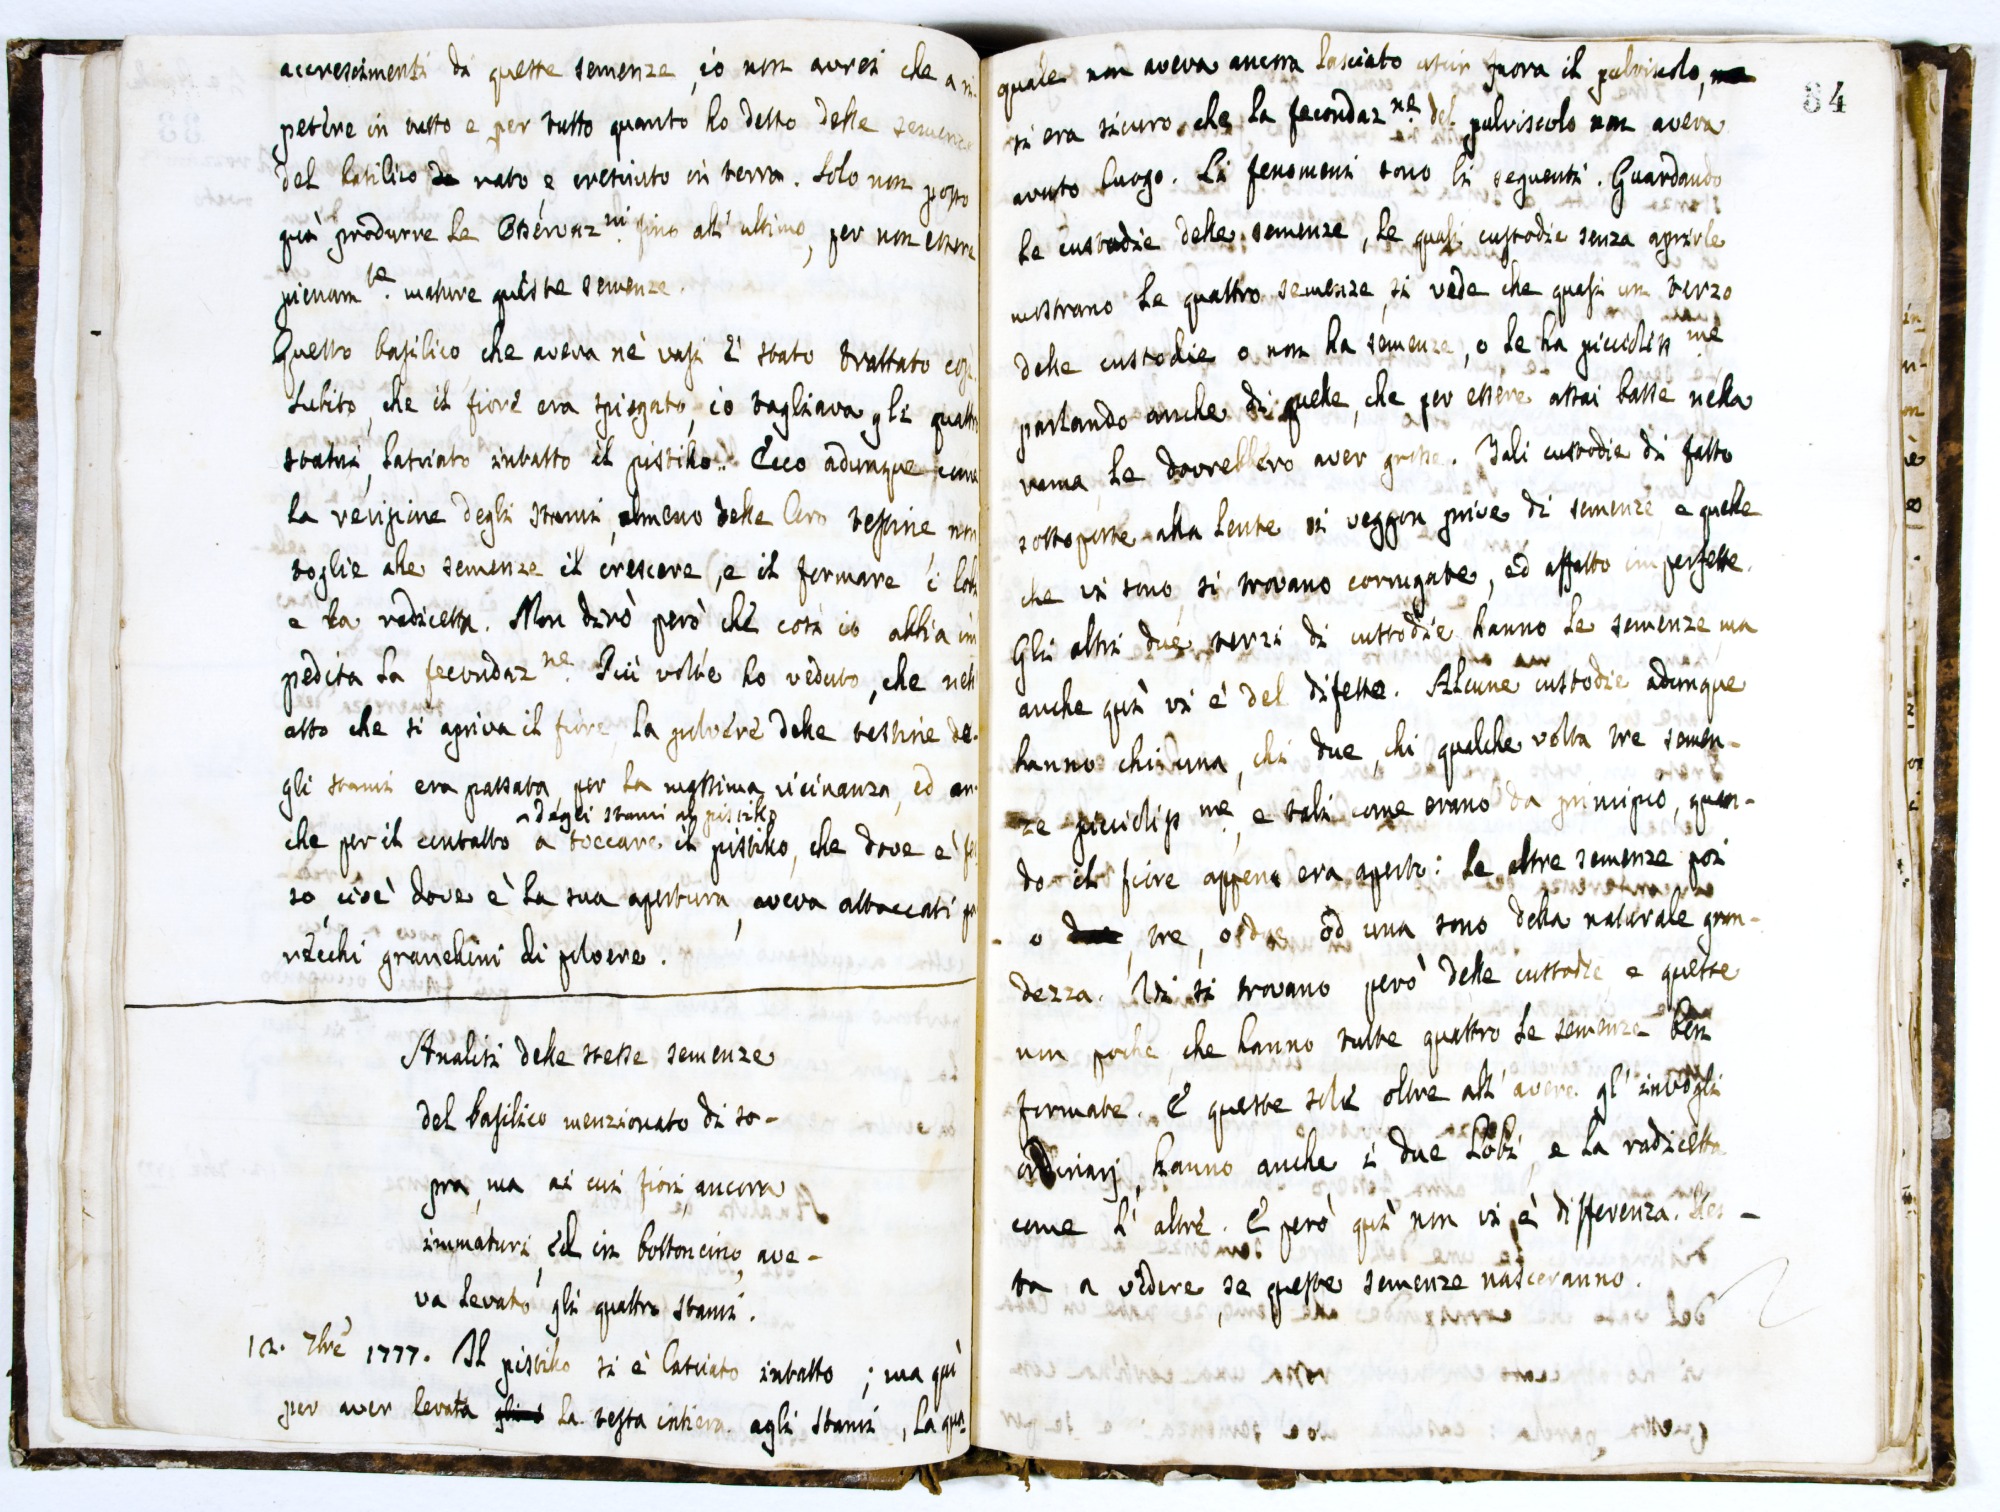 accrescimenti di queste semenze, io non avrei che a ri-
petere in tutto e per tutto quanto ho detto delle semenze
del basilico nato, e cresciuto in terra. Solo non posso
quì produrre le Osservaz.ni fino all' ultimo, per non essere
pienam.te mature queste semenze.
Questo basilico che aveva ne' vasi è stato trattato così.
Subito, che il fiore era spiegato, io tagliava gli quattro
stami, lasciato intatto il pistillo. Ecco adunque come
la recisione degli stami, almeno delle loro testine non
toglie alle semenze il crescere, e il formare i lobi
e la radicetta. Non dirò però che così io abbia im
pedita la fecondaz.ne. Più volte ho veduto, che nell'
atto che si apriva il fiore, la polvere delle testine de-
gli stami era passata per la massima vicinanza, ed an-
che per il contatto degli stami al pistillo
a toccare il pistillo, che dove è fes
so, cioè dove è la sua apertura, aveva attaccati pa
recchi granellini di polvere.
Analisi delle stesse semenze
del basilico menzionato di so-
pra, ma ai cui fiori ancora
immaturi, ed in bottoncino, ave-
va levato gli quattro stami.
12. 7bre 1777. Il pistillo si è lasciato intatto; ma quì
per aver levata la testa intiera agli stami, la qua-
84
quale non aveva ancora lasciato uscir fuora il pulviscolo,
si era sicuro che la fecondaz.ne del pulviscolo non aveva
avuto luogo. Li fenomeni sono li seguenti. Guardando
le custodie delle semenze, le quali custodie senza aprirle
mostrano le quattro semenze, si vede che quasi un terzo
delle custodie o non ha semenze, o le ha picciolis.me
parlando anche di quelle, che per essere assai basse nella
rama, le dovrebbero aver grosse. Tali custodie di fatto
sottoposte alla lente si veggon prive di semenze, e quelle
che vi sono, si trovano corrugate, ed affatto imperfette.
Gli altri due terzi di custodie hanno le semenze, ma
anche quì vi è del difetto. Alcune custodie adunque
hanno chi una, chi due, chi qualche volta tre semen-
ze picciolis.me, e tali come erano da principio, quan-
do il fiore appena era aperto: le altre semenze poi
o tre, o due, od una sono della naturale gran-
dezza. Vi si trovano però delle custodie, e queste
non poche, che hanno tutte quattro le semenze ben
formate. E queste sole oltre all' avere gl' invogli
ordinarj, hanno anche i due lobi, e la radicetta
come l' altre. E però quì non vi è differenza. Res-
ta a vedere, se queste semenze nasceranno.